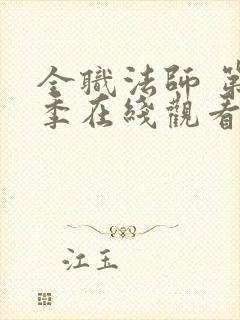 全職法師 第
季在綫觀看
江玉